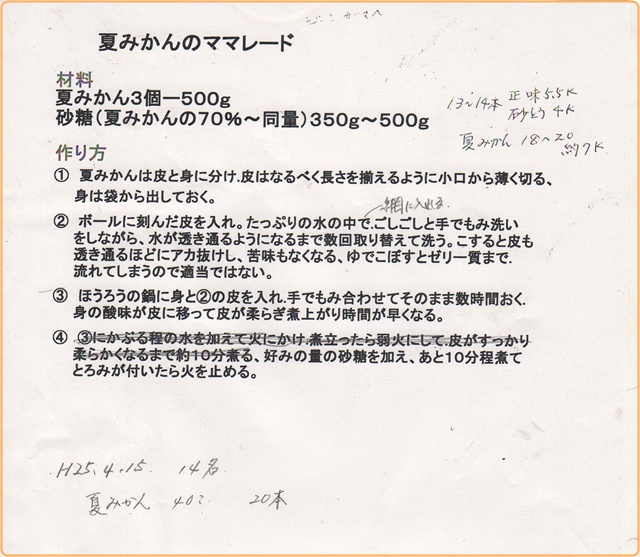 夏みかんのママレード
材料
夏みかん3個ー500g
砂糖(夏みかんの70%～同量)350g～500g
13～14本 正味5.5K
砂とう 4K
夏みかん 18～20
約7K
作り方
① 夏みかんは皮と身に分け.皮はなるべく長さを揃えるように小口から薄く切る、
身は袋から出しておく。
網に入れる
② ボールに刻んだ皮を入れ。たっぷりの水の中で.ごしごしと手でもみ洗い
をしながら、水が透き通るようになるまで数回取り替えて洗う。こすると皮も
透き通るほどにアカ抜けし、苦味もなくなる、ゆでこぼすとゼリー質まで.
流れてしまうので適当ではない。
③ ほうろうの鍋に身と②の皮を入れ.手でもみ合わせてそのまま数時間おく.
身の酸味が皮に移って皮が柔らぎ煮上がり時間が早くなる。
④ ③にかぶる程の水を加えて火にかけ.煮立ったら弱火にして.皮がすっかり
柔らかくなるまで約10分煮る、好みの量の砂糖を加え、あと10分程煮て
とろみが付いたら火を止める。
H25.4.15 14名
夏みかん 40コ 20本